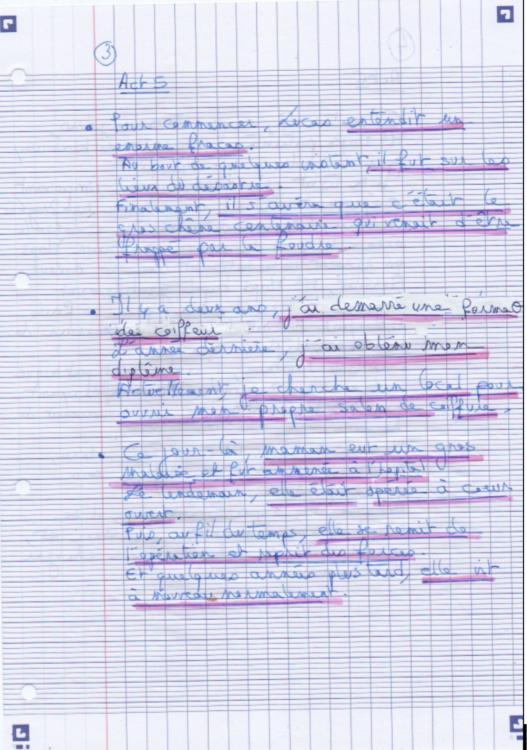 3
Act 5
• Pour commencer, Lucas entendit un
enorme fracas.
Au bout de quelques instant il fut sur les
lieux du désastre.
Finalement, il s'avéra que c'était le
gros chêne centenaire qui venait d'être
frappé par la foudre.
• Il y a deux ans, j'ai demarré une format
de coiffeur.
L'année dernière, j'ai obtenu mon
diplôme.
Actuellement, je cherche un local pour
ouvrir mon propre salon de coiffure.
• Ce jour-là, maman eut un gros
malaise et fut ammenée à l'hopital
Le lendemain, elle était opérée à coeur
ouvert.
Puis, au fil du temps, elle se remit de
l'opération et reprit des forces.
Et quelques années plus tard, elle vit
à nouveau normalement.